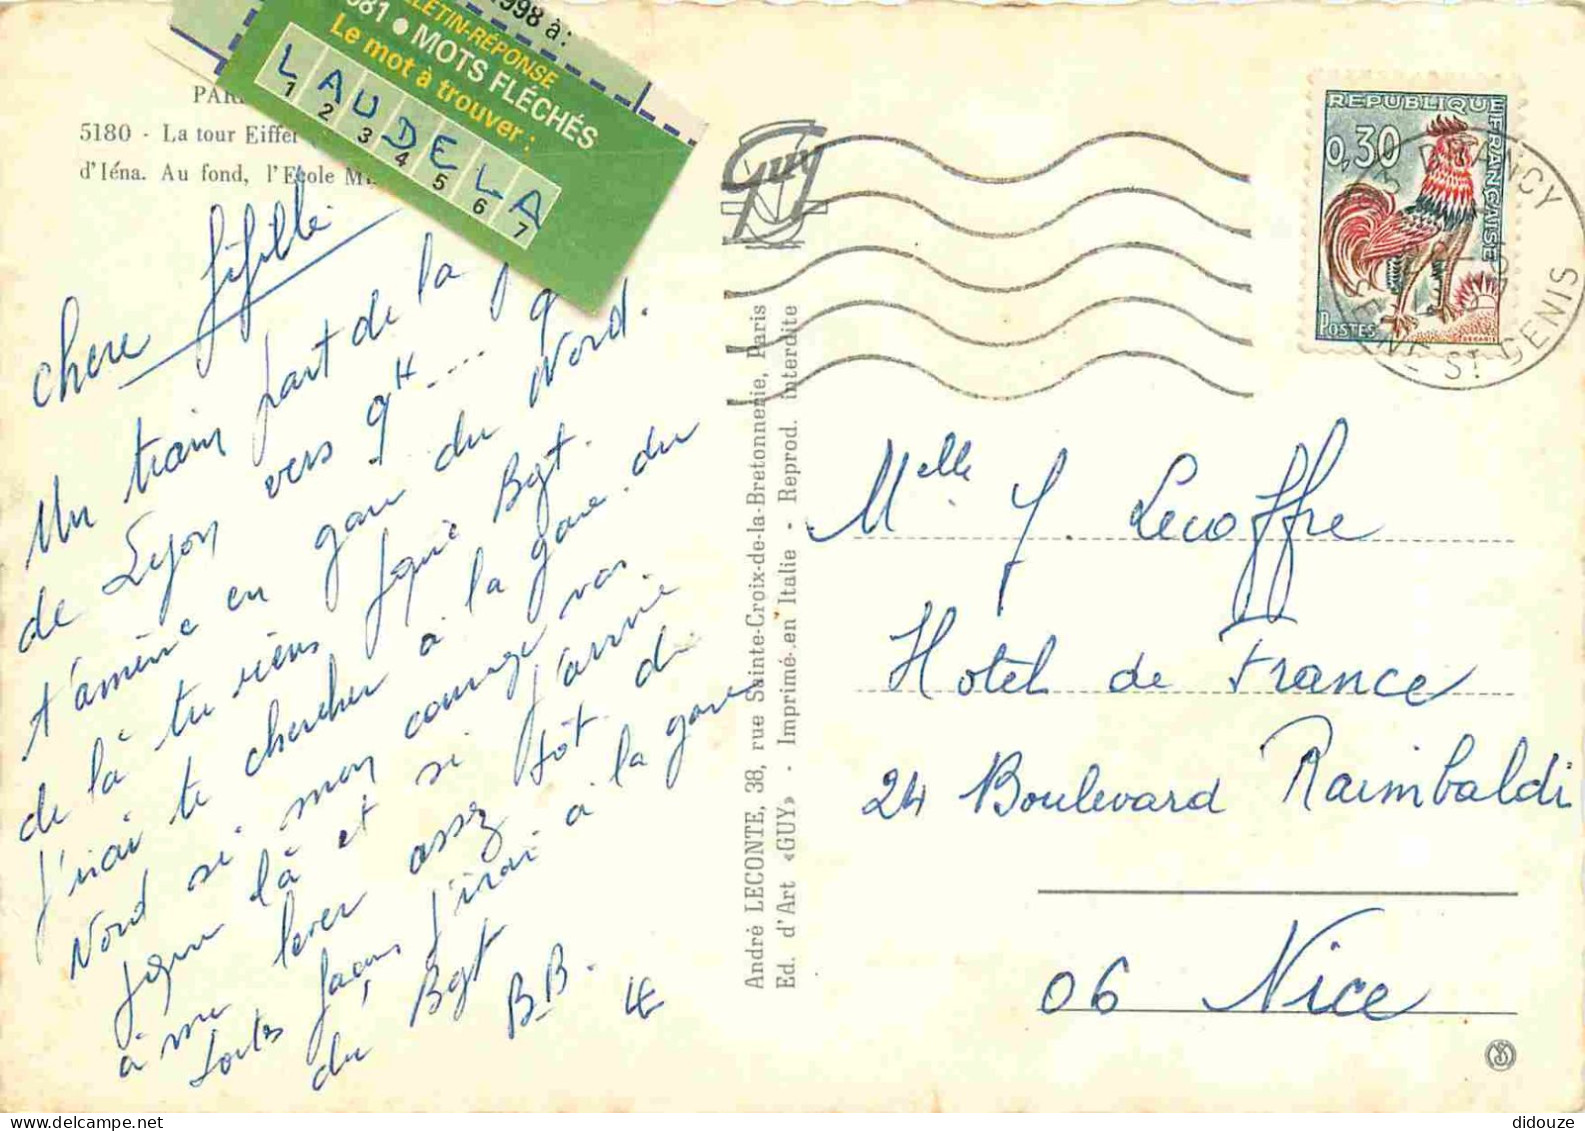 1998 à:
LETIN-RÉPONSE
681 • MOTS FLÉCHÉS
Le mot à trouver :
L A U D E L A
1 2 3 4 5 6 7
PAR
5180 - La tour Eiffel
d'Iéna. Au fond, l'Ecole Mi
chere fifille
Un train part de la
de Lyon vers 9H ....
t'amène en gare du Nord.
de là tu viens jque Bgt.
J'irai te chercher à la gare du
Nord si mon courage va
jque là et si j'arrive
à me lever assez tôt. de
toutes façons j'irai à la gare
du Bgt
BB.
LE
Guy
André LECONTE, 38, rue Sainte-Croix-de-la-Bretonnerie, Paris
Ed. d'Art «GUY» - Imprimé en Italie - Reprod. interdite
REPUBLIQUE FRANÇAISE
0,30
POSTES
DECARIS
DRANCY
SEINE ST DENIS
Melle Y. Lecoffre
Hotel de France
24 Boulevard Raimbaldi
06 Nice
didouze